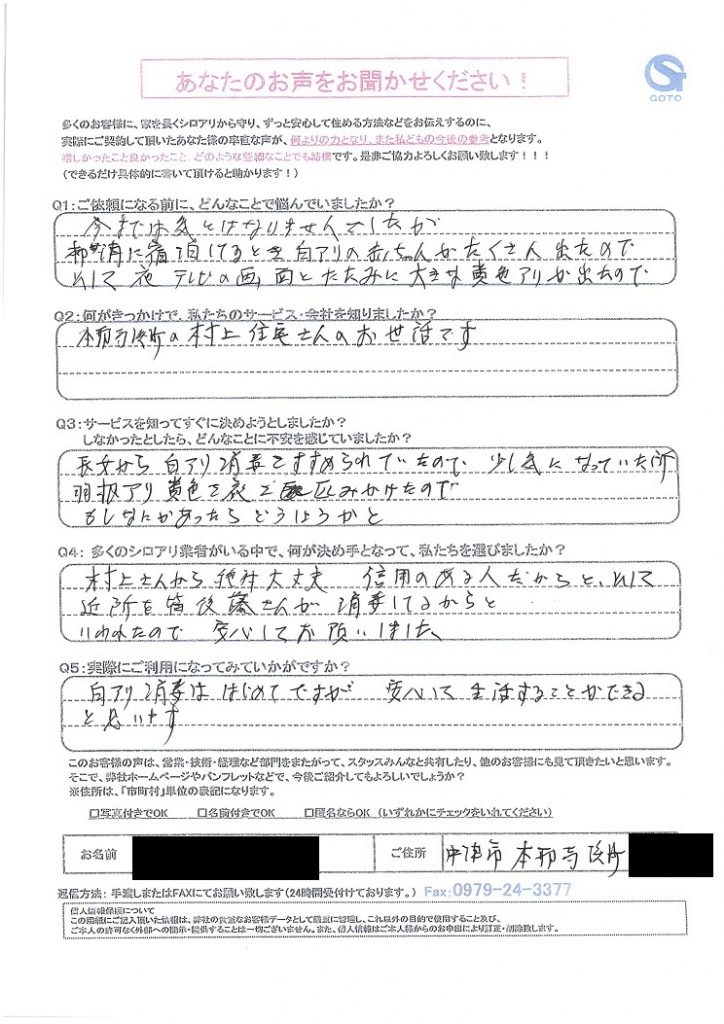 あなたのお声をお聞かせください！
GOTO
多くのお客様に、家を長くシロアリから守り、ずっと安心して住める方法などをお伝えするのに、
実際にご契約して頂いたあなた様の率直な声が、何よりの力となり、また私どもの今後の参考となります。
嬉しかったこと良かったこと、どのような些細なことでも結構です。是非ご協力よろしくお願い致します！！！
（できるだけ具体的に書いて頂けると助かります！）
Q1：ご依頼になる前に、どんなことで悩んでいましたか？
今までは気とはなりませんでしたが
に宿泊してるとき白アリの赤ちゃんがたくさん出たので
そして夜テレビの画面とたたみに大きな黄色アリが出たので
Q2：何がきっかけで、私たちのサービス・会社を知りましたか？
本耶馬渓町の村上住宅さんのお世話です
Q3：サービスを知ってすぐに決めようとしましたか？
しなかったとしたら、どんなことに不安を感じていましたか？
長女から白アリ消毒をすすめられていたので 少し気になっていた所
羽根アリ黄色を夜2匹みかけたので
もしなにかあったらどうしようかと
Q4： 多くのシロアリ業者がいる中で、何が決め手となって、私たちを選びましたか？
村上さんから絶対大丈夫 信用のある人だからと、そして
近所も皆後藤さんが消毒してるからと
いわれたので 安心してお願いしました、
Q5：実際にご利用になってみていかがですか？
白アリ消毒ははじめてですが 安心して生活することができる
と思います
このお客様の声は、営業・技術・経理など部門をまたがって、スタッスみんなと共有したり、他のお客様にも見て頂きたいと思います。
そこで、弊社ホームページやパンフレットなどで、今後ご紹介してもよろしいでしょうか？
※住所は、「市町村」単位の表記になります。
□写真付きでOK □名前付きでOK □匿名ならOK （いずれかにチェックをいれてください）
お名前 ご住所 中津市 本耶馬渓町
返信方法： 手渡しまたはFAXにてお願い致します（24時間受付ております。） Fax：0979-24-3377
個人情報保護について
この用紙にご記入頂いた情報は、弊社の貴重なお客様データとして厳重に管理し、これ以外の目的で使用すること及び、
ご本人の許可なく外部への開示・提供することは一切ございません。また、個人情報はご本人様からのお申出により訂正・削除致します。